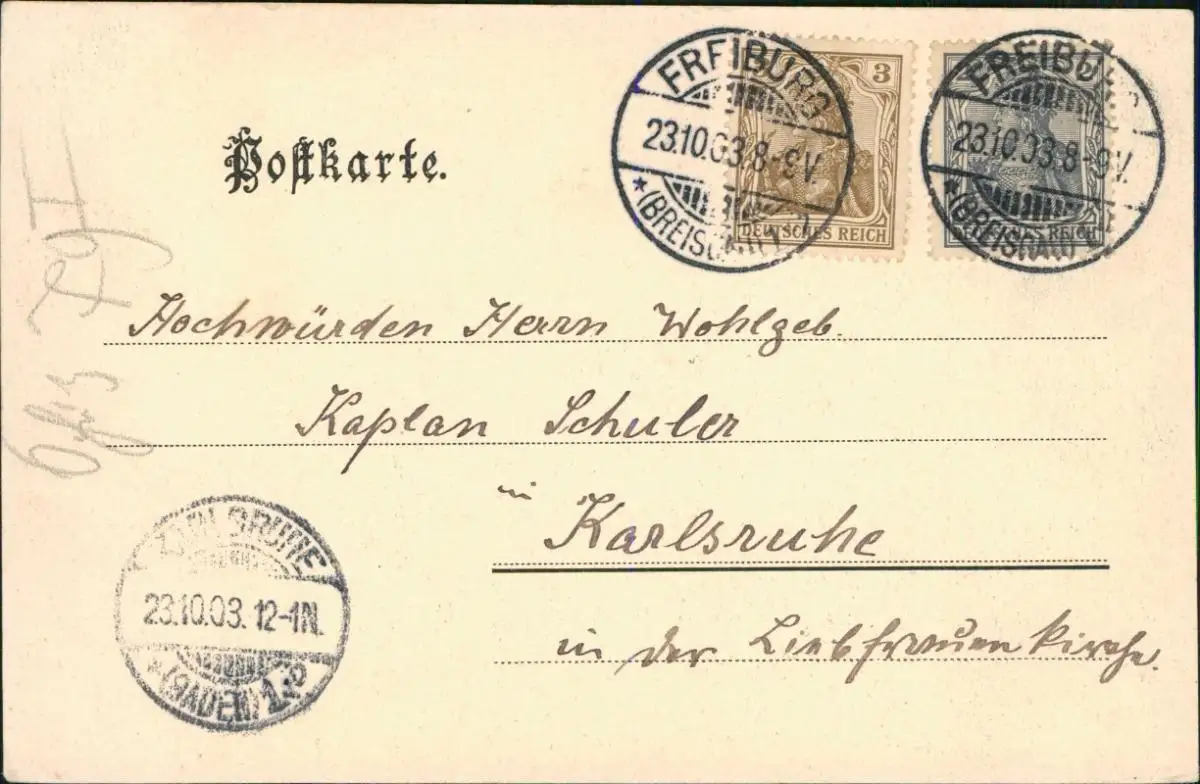 Postkarte.
FREIBURG
23.10.03.8-9V.
* (BREISGAU)
3
DEUTSCHES REICH
FREIBURG
23.10.03.8-9V.
* (BREISGAU)
DEUTSCHES REICH
Hochwürden Herrn Wohlgeb.
Kaplan Schuler
in
Karlsruhe
in der Liebfrauenkirche.
KARLSRUHE
23.10.03. 12-1N.
(BADEN) 1.